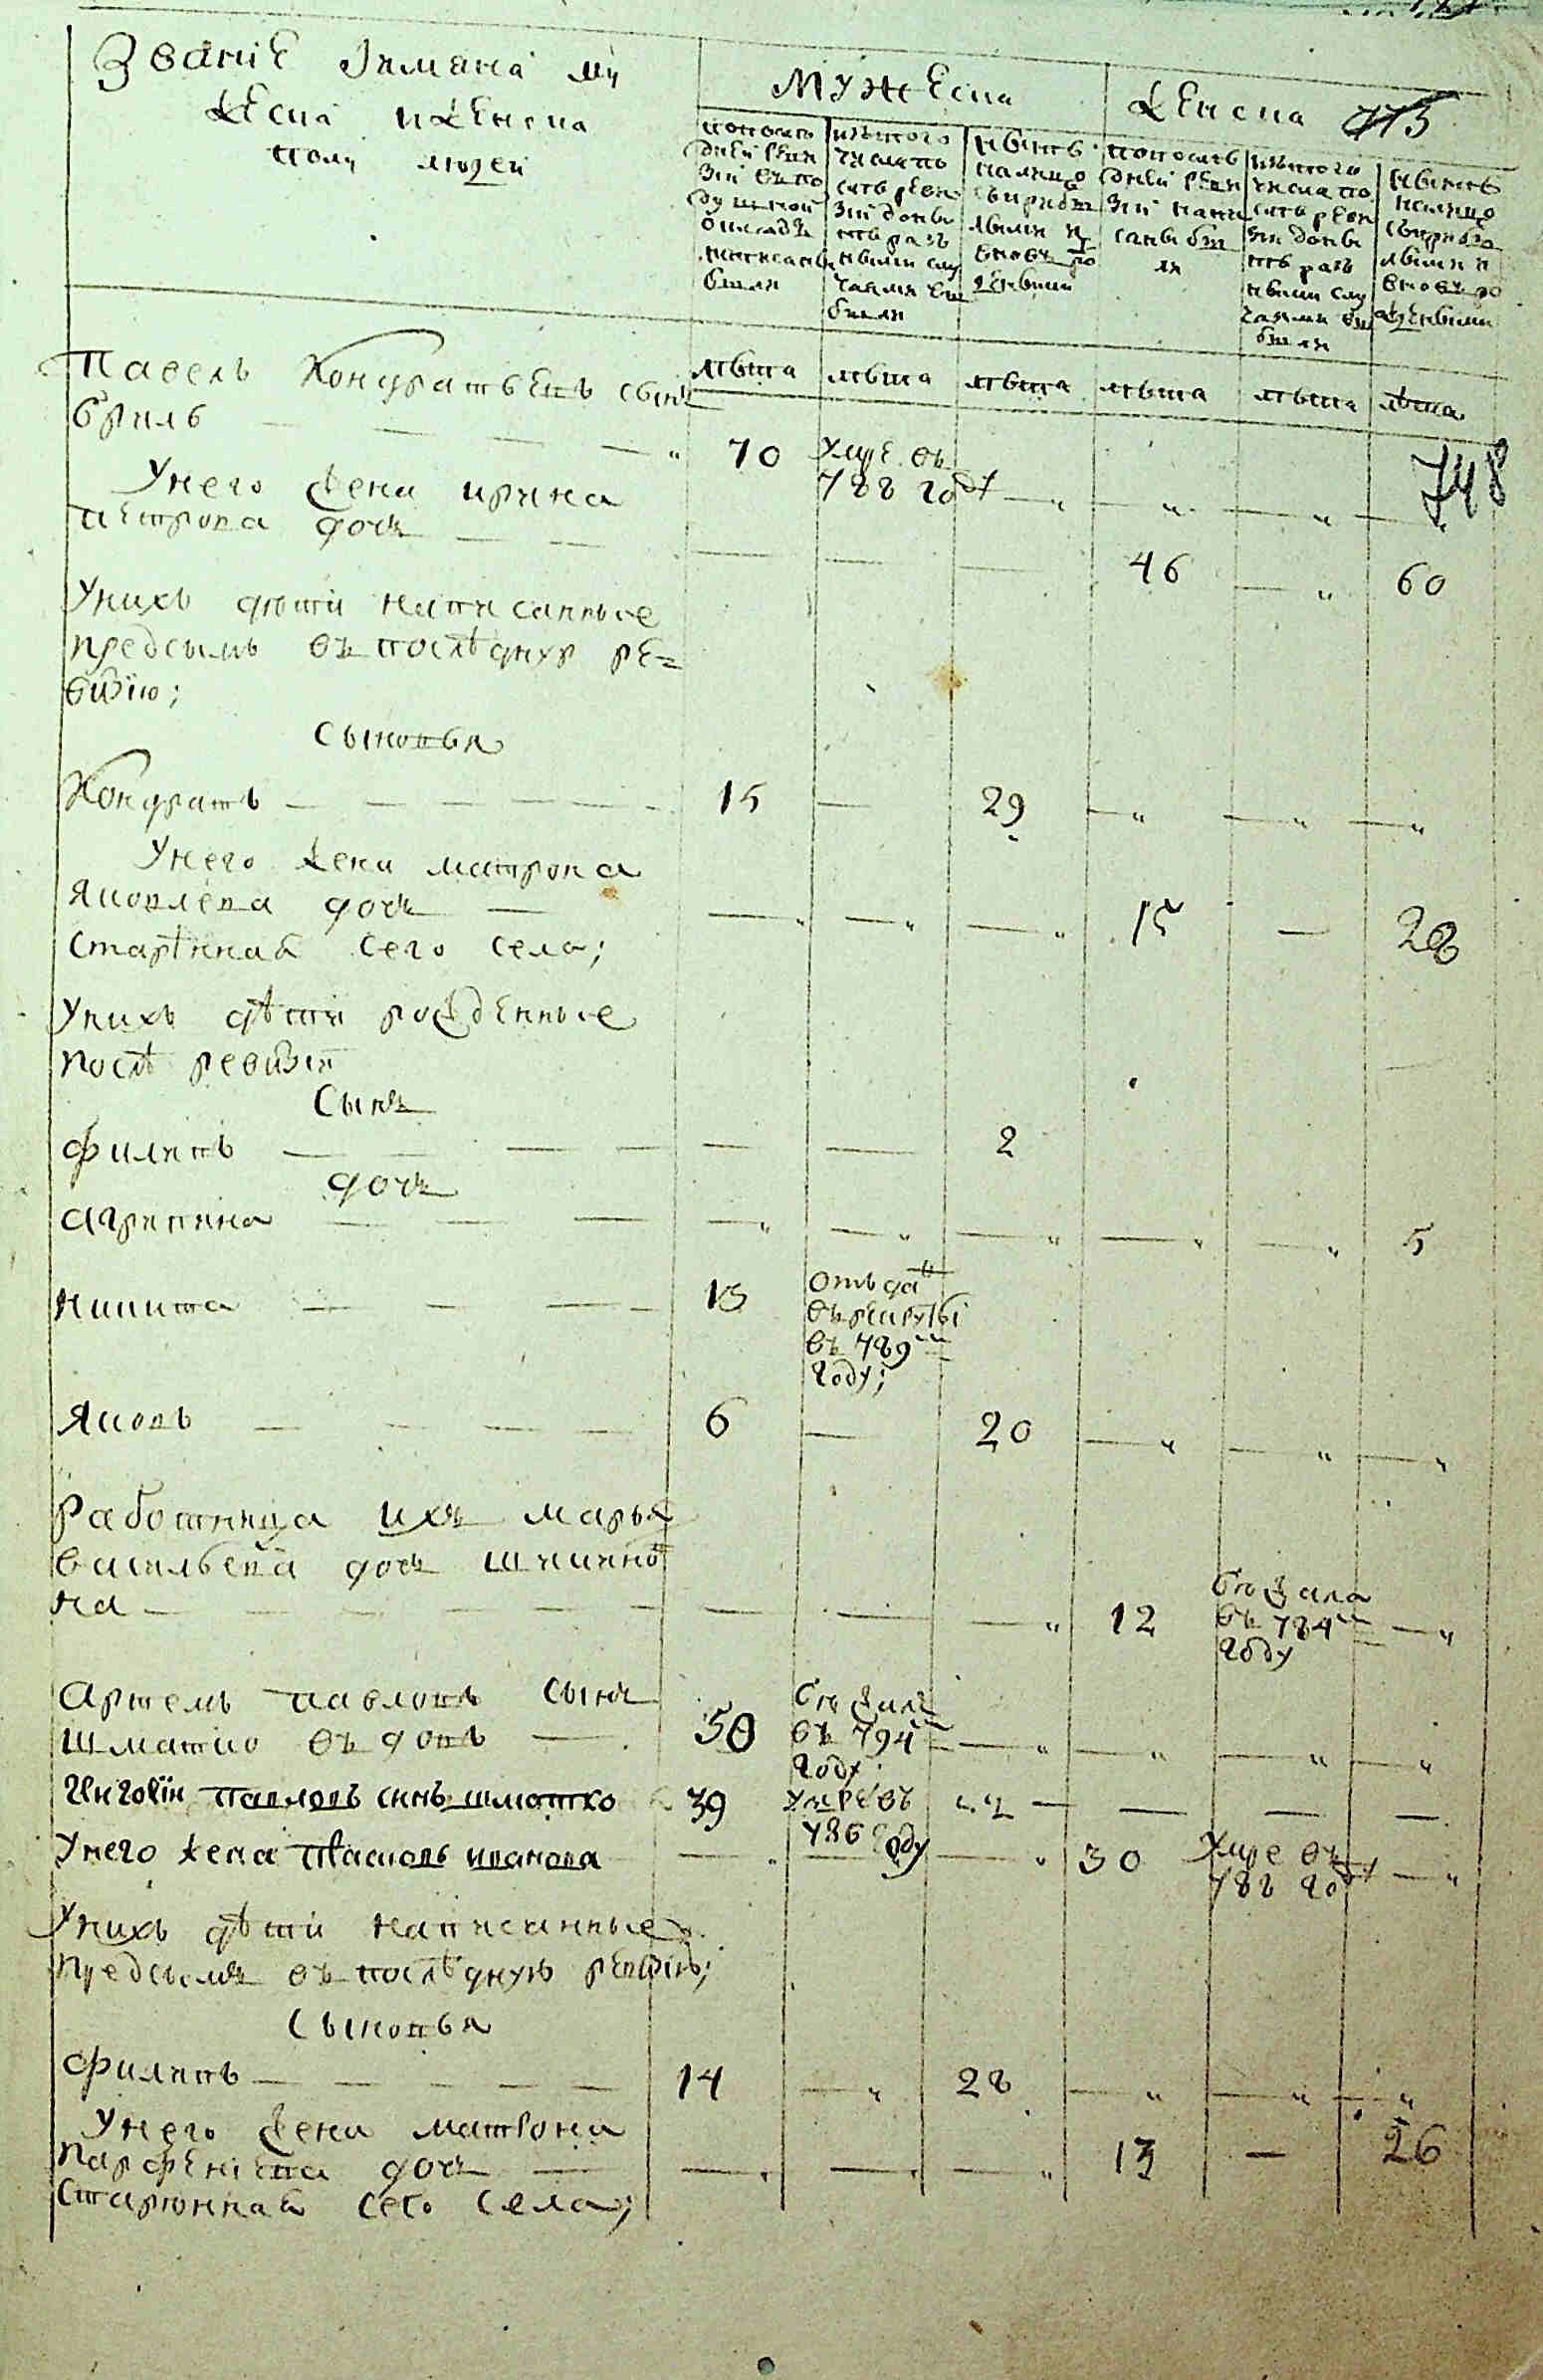 Званіе Іимяна му
жеска иженска
полу людей
Мужеска
Женска 775
попослѣ
дней реви
зіи въпо
душной
окладъ
написаны
были
изътого
числа по
слѣ реви
зіи донынѣ
разъ
ными слу
чаями вы
были
нынѣ
налицо
съприбы
лыми и
вновь ро
жденными
попослѣ
дней реви
зіи напи
саны бы
ли
изътого
числа по
слѣ реви
зіи донынѣ
разъ
ными слу
чаями вы
были
нынѣ
налицо
съприбы
лыми и
вновь ро
жденными
лѣта лѣта лѣта лѣта лѣта лѣта
Павелъ Кондратьевъ сынъ
бриль 70 умре въ
788 году 748
Унего жена ирина
петрова дочь 46 60
Унихъ дѣти написанные
предсымъ въпослѣднюю ре=
визію;
Сыновья
Кондратъ 15 29
Унего жена матрона
Яковлева дочь 15 28
старинная сего села;
Унихъ дѣти рожденные
послѣ ревизіи
Сынъ
Филипъ 2
дочь
Агрипина 5
Никита 13 отъдан
върекруты
въ 789м
году;
Яковъ 6 20
Работница ихъ марья
васильева дочь
на 12 бѣжала
въ 784м
году
Артемъ павловъ сынъ
шматко въдовъ 50 бѣжалъ
въ 794
году
павловъ синъ шматко 39 умре въ
786 году
Унего жена иванова 30 умре въ
788 году
Унихъ дѣти написанные
предсымъ въпослѣднюю ревизію;
Сыновья
Филипъ 14 28
Унего жена матрона
парфеніева дочь 13 26
старинная сего села;